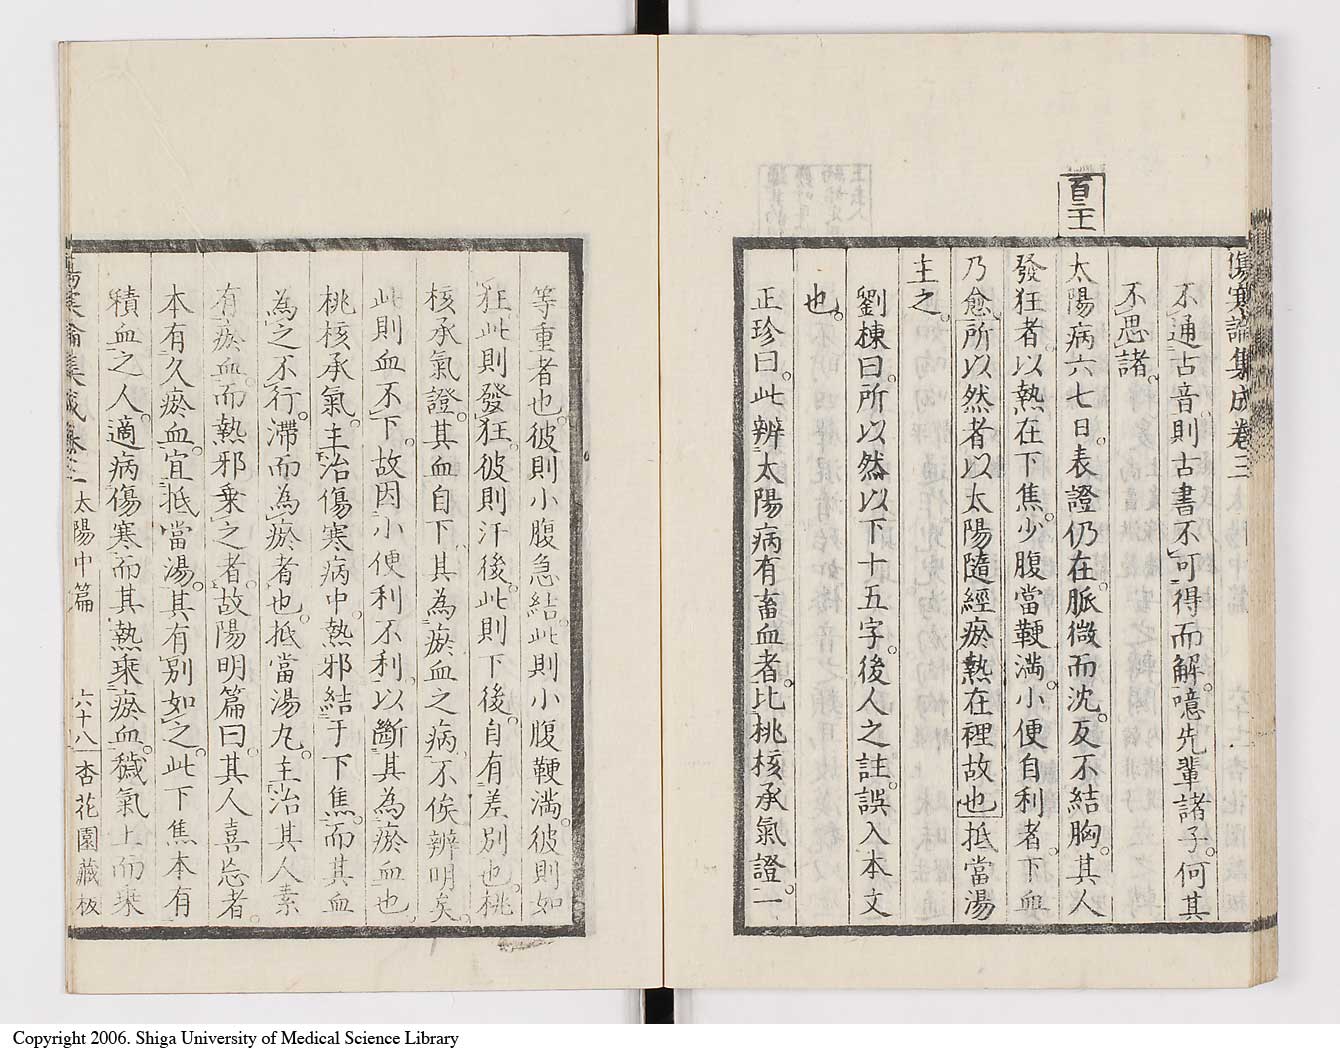 傷寒論集成卷三
不通古音。則古書不可得而解。噫先輩諸子。何其
不思諸。
百二十
太陽病六七日。表證仍在。脈微而沈。反不結胸。其人
發狂者。以熱在下焦。少腹當鞕滿。小便自利者。下血
乃愈。所以然者。以太陽隨經瘀熱在裡故也抵當湯
主之。
劉棟曰。所以然以下十五字。後人之註。誤入本文
也。
正珍曰。此辨太陽病有畜血者。比桃核承氣證。一
等重者也。彼則小腹急結。此則小腹鞕滿。彼則如
狂。此則發狂。彼則汗後。此則下後。自有差別也。桃
核承氣證。其血自下。其為瘀血之病。不俟辨明矣。
此則血不下。故因小便利不利。以斷其為瘀血也
桃核承氣。主治傷寒病中。熱邪結于下焦。而其血
為之不行。滯而為瘀者也。抵當湯丸。主治其人素
有瘀血。而熱邪乘之者。故陽明篇曰。其人喜忘者。
本有久瘀血。宜抵當湯。其有別如之。此下焦本有
積血之人。適病傷寒。而其熱乘瘀血。穢氣上而乘
傷寒論集成卷三 太陽中篇 六十八 杏花園藏板
Copyright 2006. Shiga University of Medical Science Library